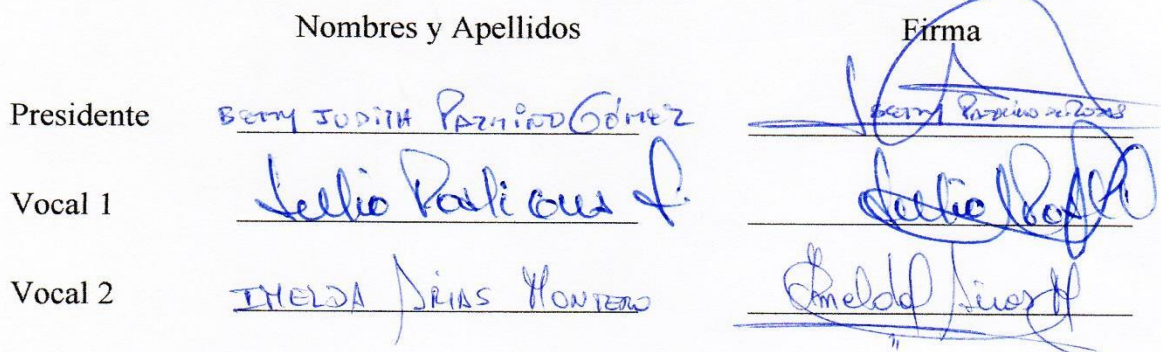 Nombres y Apellidos Firma
Presidente BETTY JUDITH PAZMIÑO GÓMEZ BETTY PAZMIÑO DE ROJAS
Vocal 1
Vocal 2 IMELDA ARIAS MONTERO Imelda Arias M